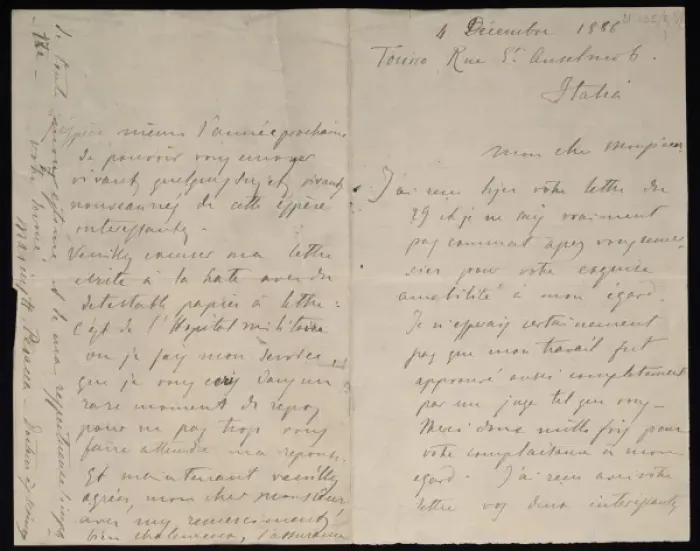 4 Décembre 1886
Torino Rue St Anselmo 6.
Italia
Mon cher Monsieur
J'ai reçu hier votre lettre du
29 et je ne sais vraiment
pas comment assez vous remer-
cier pour votre exquise
amabilité à mon égard.
Je n'esperais certainement
pas que mon travail fut
approuvé aussi complètement
par un juge tel que vous –
Merci donc mille fois pour
votre complaisance à mon
égard. J'ai reçu avec votre
lettre vos deux interessants
J'espère même l'année prochaine
de pouvoir vous envoyer
vivants quelques sujets vivants
nouveaux nés de cette espèce
interessante.
Veuillez excuser ma lettre
écrite à la hate avec du
detestable papier à lettre:
C'est de l'Hopital militaire
ou je fais mon service
que je vous écris dans un
rare moment de repos
pour ne pas trop vous
faire attendre ma reponse.
Et maintenant veuillez
agréer, mon cher Monsieur
avec mes remerciements
bien chaleureux, l'assurance
de toute mon estime et de ma respectueuse
votre
Peracca